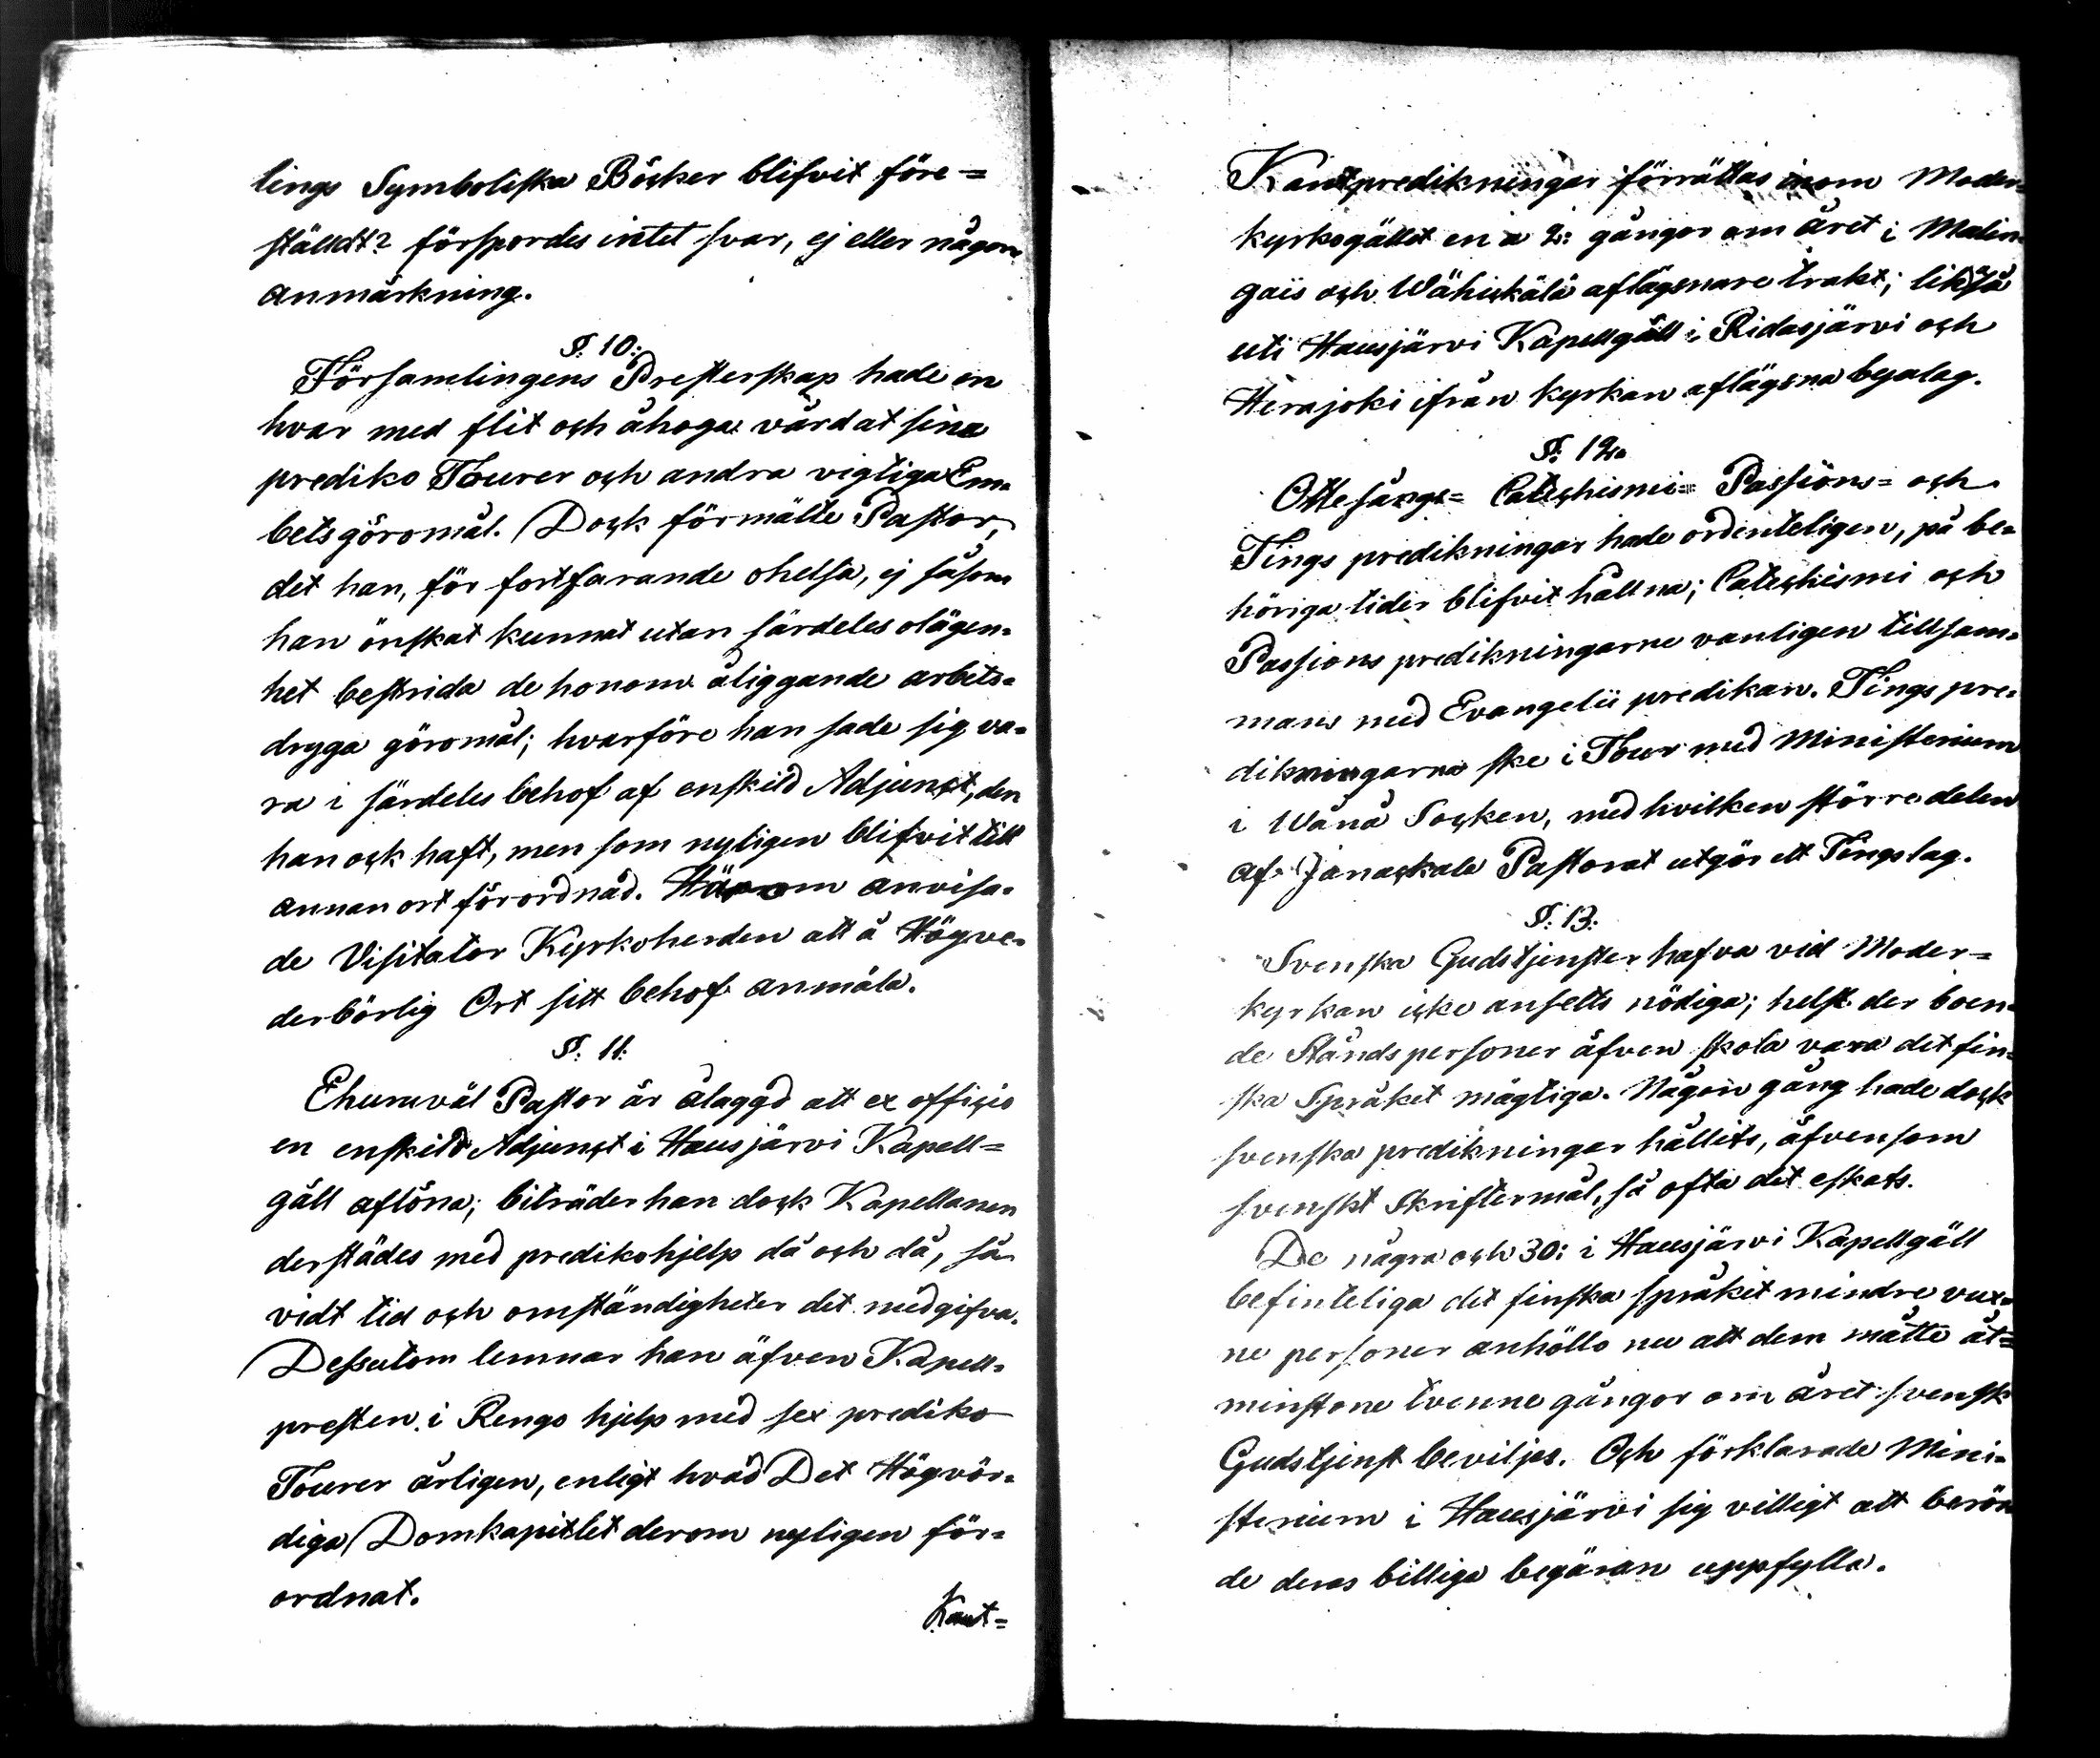 lings Symboliska Böcker blifvit före=
ställdt? förspordes intet svar, ej eller någon
anmärkning.
§. 10:
Församlingens Presterskap hade en
hvar med flit och åhoga vårdat sina
prediko Tourer och andra vigtiga Em=
betsgöromål. Dock förmälte Pastor,
det han, för fortfarande ohelsa, ej såsom
han önskat kunnat utan särdeles olägen=
het bestrida de honom åliggande arbets=
dryga göromål; hvarföre han sade sig va=
ra i särdeles behof af enskild Adjunct, den
han ock haft, men som nyligen blifvit till
annan ort förordnad. Härom anvisa=
de Visitator Kyrkoherden att å Högve=
derbörlig Ort sitt behof anmäla.
§. 11:
Ehuruväl Pastor är ålaggd att ex officio
en enskild Adjunct i Hausjärvi Kapell=
gäll aflöna; biträder han dock Kapellanen
derstädes med predikohjelp då och då, så
vidt tid och omständigheter det medgifva.
Dessutom lemnar han äfven Kapell=
presten i Rengo hjelp med sex prediko
Tourer årligen, enligt hvad Det Högvör=
diga Domkapitlet derom nyligen för=
ordnat.
Kant=
Kantpredikningar förrättas inom Moder=
kyrkogället en a 2: gångor om året i Malin=
gais och Wähickälä aflägsnare trakt; likså
uti Hausjärvi Kapellgäll i Ridasjärvi och
Herajoki ifrån kyrkan aflägsna byalag.
§. 12.
Ottesångs= Catechismi= Passions= och
Tings predikningar hade ordenteligen, på be=
höriga tider blifvit hållna; Catechismi och
Passions predikningarne vanligen tillsam=
mans med Evangelii predikan. Tings pre=
dikningarna ske i Tour med Ministerium
i Wånå Socken, med hvilken större delen
af Janackala Pastorat utgör ett Tingslag.
§. 13:
Svenska Gudstjenster hafva vid Moder=
kyrkan icke ansetts nödiga; helst der boen=
de Stånds personer äfven skola vara det fin=
ska Språket mägtiga. Någon gång hade dock
svenska predikningar hållits, äfvensom
svenskt Skriftermål, så ofta det eskats.
De några och 30: i Hausjärvi Kapellgäll
befinteliga det finska språket mindre vux=
ne personer anhöllo nu att dem måtte åt=
minstone tvenne gångor om året svensk
Gudstjenst beviljes. Och förklarade Mini=
sterium i Hausjärvi sig villigt att berör
de deras billiga begäran uppfylla.